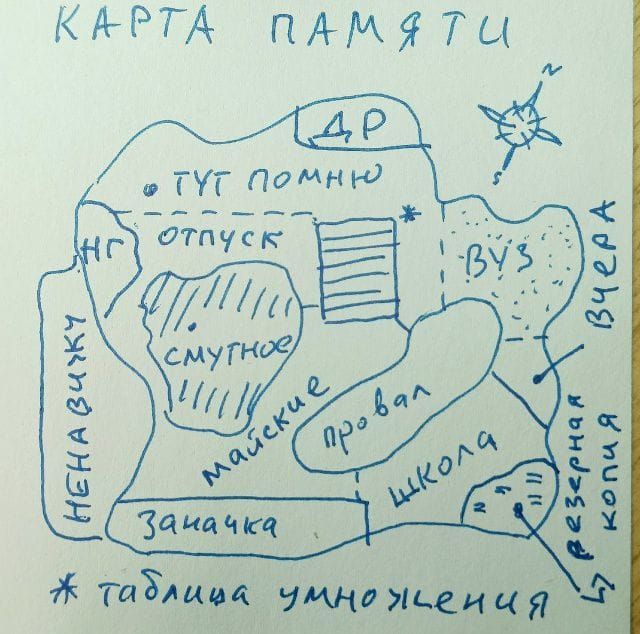 КАРТА ПАМЯТИ
N
S
ДР
ТУТ ПОМНЮ
*
НГ
ОТПУСК
ВУЗ
ВЧЕРА
СМУТНОЕ
НЕНАВИЖУ
МАЙСКИЕ
ПРОВАЛ
ШКОЛА
РЕЗЕРНАЯ
КОПИЯ
ЗАНАЧКА
* ТАБЛИЦА УМНОЖЕНИЯ